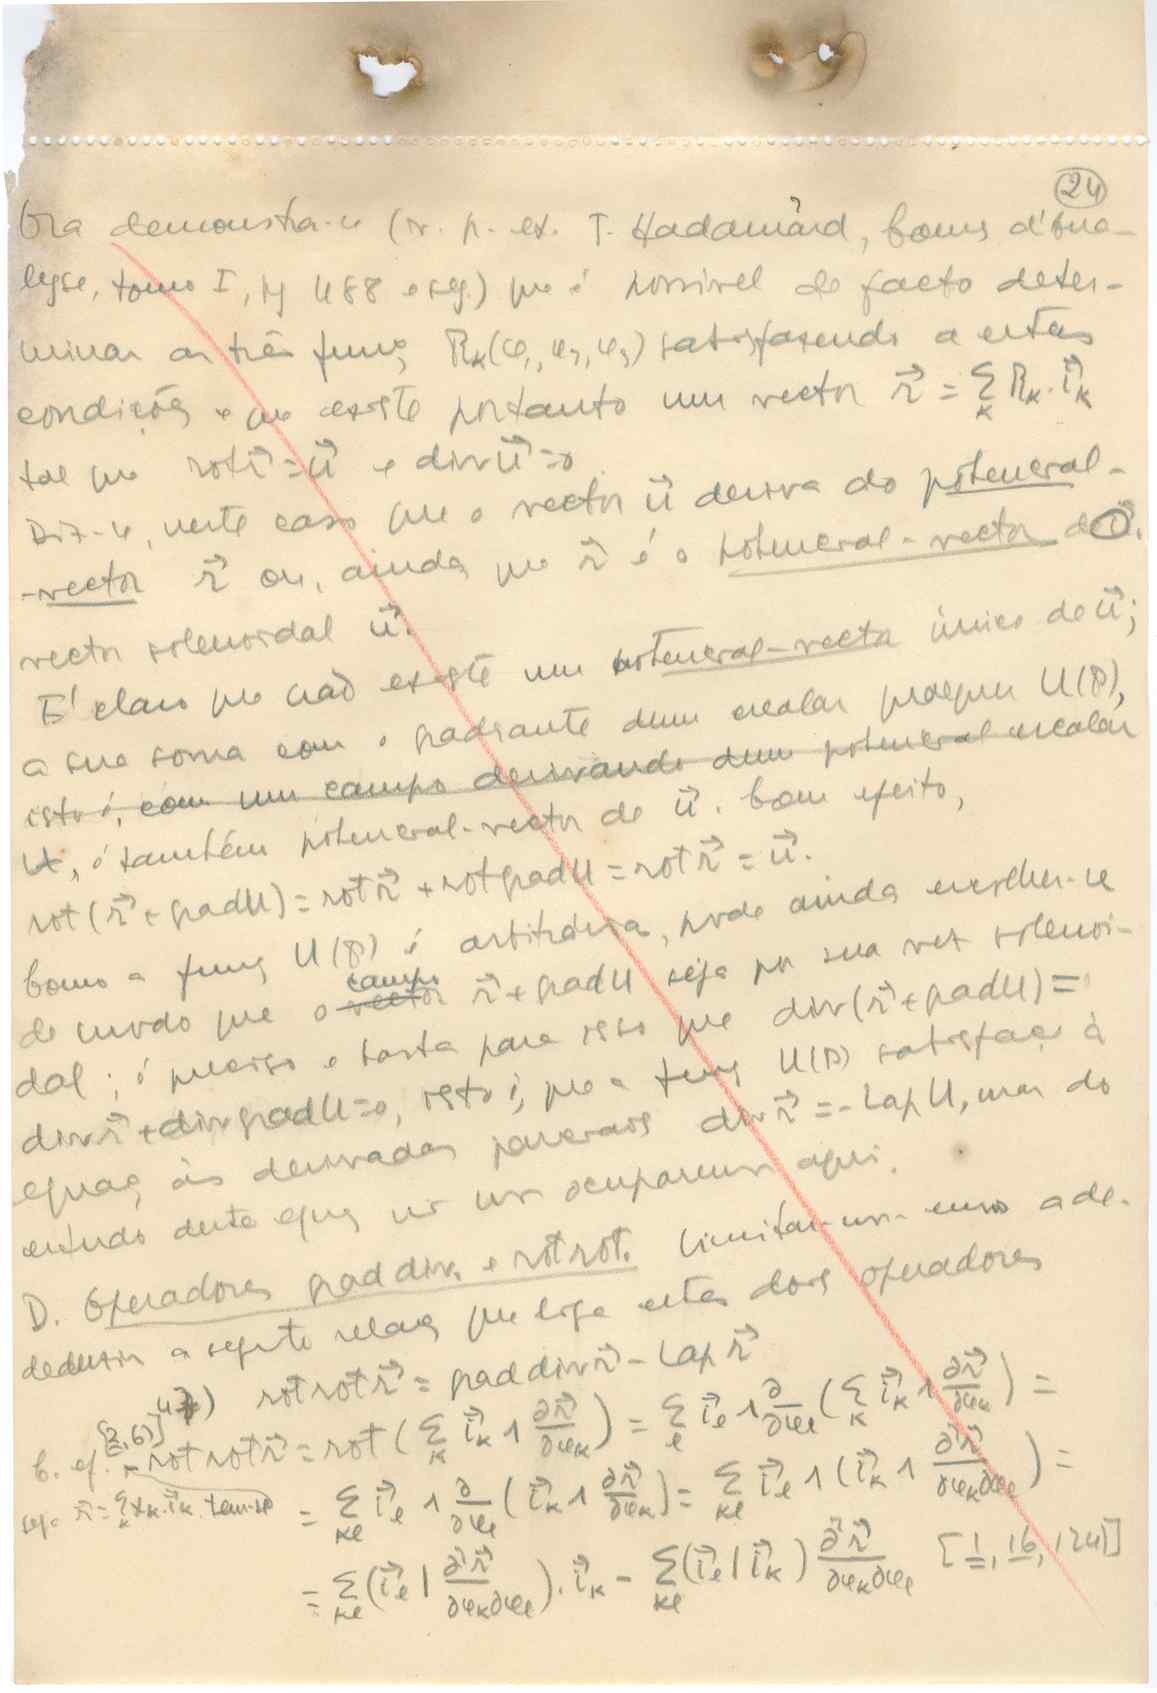 24
Ora demonstra-se (v. p. ex. J. Hadamard, Cours d'Ana-
lyse, tomo I, pg 488 e seg.) que é possivel de facto deter-
minar as três funç. R_k(φ₁, φ₂, φ₃) satisfazendo a estas
condições e que existe portanto um vector r⃗ = Σ_k R_k. i⃗_k
tal que rot r⃗ = u⃗ e div u⃗ = 0
Diz-se, neste caso que o vector u⃗ deriva do potencial-
-vector r⃗ ou, ainda, que r⃗ é o potencial-vector do
vector solenoidal u⃗.
E' claro que não existe um potencial-vector único de u⃗;
a sua soma com o gradiante dum escalar qualquer U(P),
isto é, com um campo derivando dum potencial escalar
U, é também potencial-vector de u⃗. Com efeito,
rot(r⃗ + grad U) = rot r⃗ + rot grad U = rot r⃗ = u⃗.
Como a funç. U(P) é arbitrária, pode ainda escolher-se
campo
de modo que o vector r⃗ + grad U seja por sua vez solenoi-
dal; é preciso e basta para isso que div(r⃗ + grad U) =
div r⃗ + div grad U = 0, isto é, que a funç. U(P) satisfaça à
equaç. às derivadas parciais div r⃗ = - Lap U, mas do
estudo desta equaç. não nos ocuparemos aqui.
D. Operadores grad div. e rot rot. Limitar-nos-emos a de-
deduzir a seguinte relaç. que liga estes dois operadores
4) rot rot r⃗ = grad div r⃗ - Lap r⃗
[2, 6)] rot rot r⃗ = rot (Σ_k i⃗_k ∧ ∂r⃗/∂φ_k) = Σ_l i⃗_l ∧ ∂/∂φ_l (Σ_k i⃗_k ∧ ∂r⃗/∂φ_k) =
seja r⃗ = Σ_k x_k. i⃗_k. tem-se
= Σ_kl i⃗_l ∧ ∂/∂φ_l (i⃗_k ∧ ∂r⃗/∂φ_k) = Σ_kl i⃗_l ∧ (i⃗_k ∧ ∂²r⃗/∂φ_k∂φ_l) =
= Σ_kl (i⃗_l | ∂²r⃗/∂φ_k∂φ_l). i⃗_k - Σ_kl (i⃗_l | i⃗_k) ∂²r⃗/∂φ_k∂φ_l [1, 16, 124)]